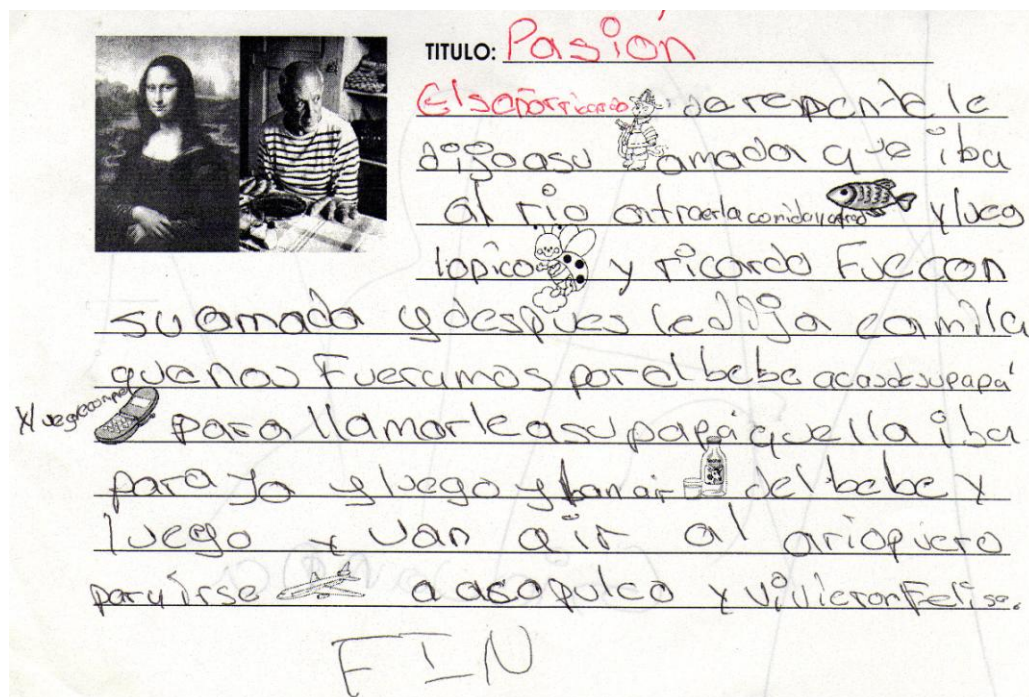 TITULO: Pasión
El señor ricardo de repente le
digo a su amada que iba
al rio a traer la comida y luego
lo pico y ricardo Fue con
su amada y despues le dija camila
que nos Fueramos por el bebe a casa de su papá
y luego para llamarle a su papá quella iba
para ya y luego y ban air del bebe y
luego y van air al ariopuero
para irse a acapulco y vivieron Felise.
FIN